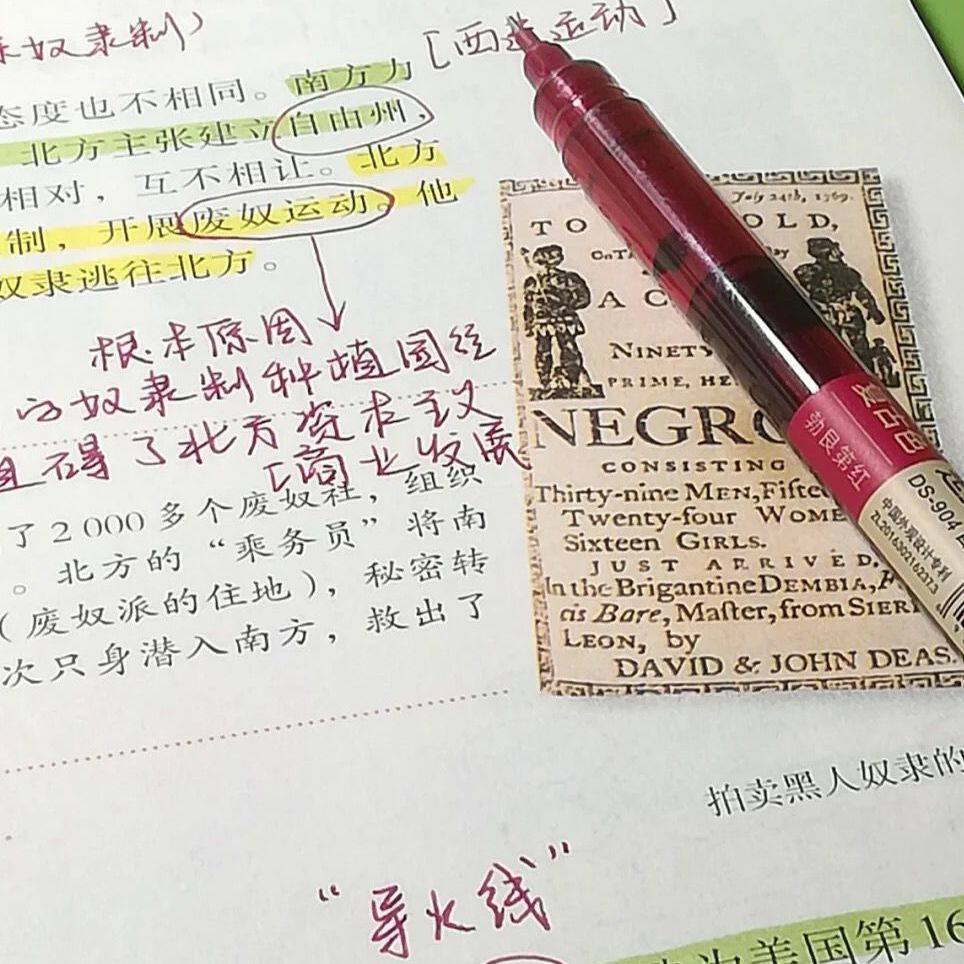 奴隶制）
[西进运动]
态度也不相同。南方力
北方主张建立自由州，
相对，互不相让。北方
制，开展废奴运动。他
奴隶逃往北方。
根本原因
方奴隶制种植园经
且碍了北方资本主义
[商业发展
了2 000多个废奴社，组织
。北方的“乘务员”将南
（废奴派的住地），秘密转
次只身潜入南方，救出了
July 24th, 1769.
TO OLD,
A C
NINETY
PRIME, HE
NEGRO
CONSISTING
Thirty-nine MEN, Fifte
Twenty-four WOME
Sixteen GIRLS.
JUST ARRIVED,
In the Brigantine DEMBIA, F
ais Bare, Maſter, from SIER
LEON, by
DAVID & JOHN DEAS.
勃艮第红
DS-904
中国外观设计专利
ZL201630216237.3
拍卖黑人奴隶的
“导火线”
为美国第16